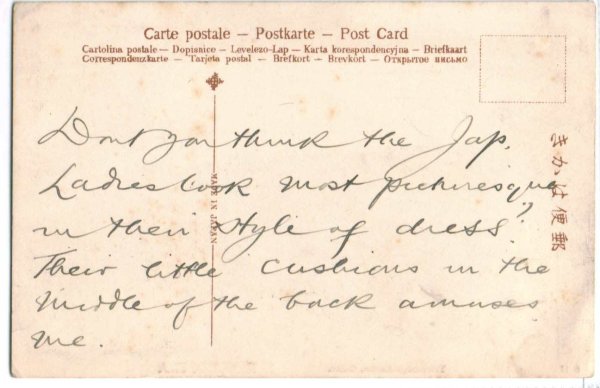 Carte postale — Postkarte — Post Card
Cartolina postale — Dopisnice — Levelezo-Lap — Karta korespondencyjna — Briefkaart
Correspondenzkarte — Tarjeta postal — Brefkort — Brevkort — Открытое письмо
Dont you think the Jap.
Ladies look most picturesque
in their style of dress?
Their little cushions in the
middle of the back amuses
me.
MADE IN JAPAN
郵便はかき